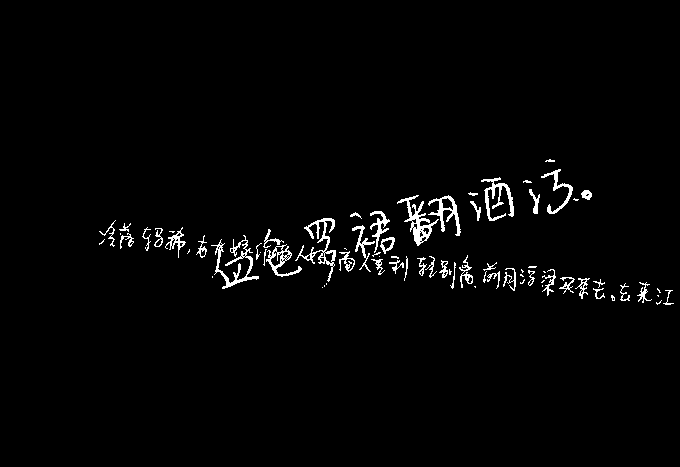 血色罗裙翻酒污。
冷落稀,老大嫁作商人妇商人重利轻别离前月浮梁买茶去。去来江